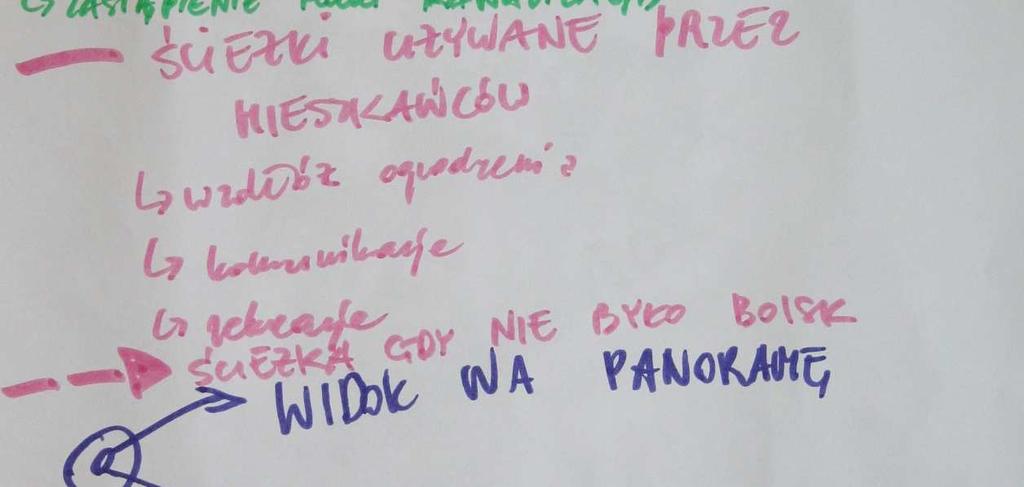 ↳ ZASTĄPIENIE
ŚCIEZKI UŻYWANE PRZEZ
MIESZKAŃCÓW
↳ wzdłóż ogrodzenia
↳ komunikacje
↳ rekreacje
ŚCIEZKA GDY NIE BYŁO BOISK
WIDOK NA PANORAMĘ